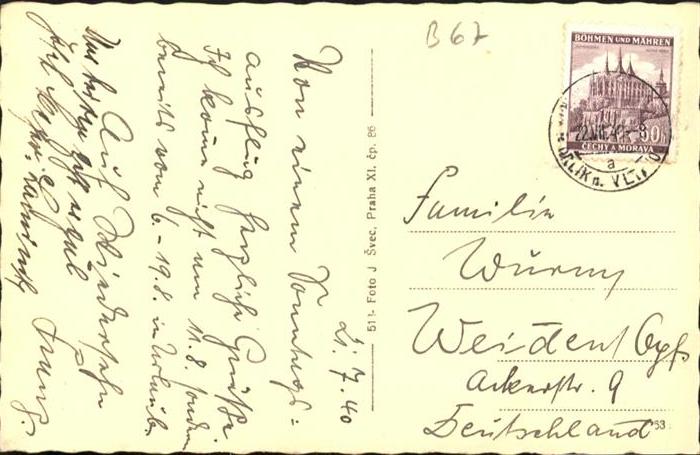 B 67
BÖHMEN UND MÄHREN
50h
ČECHY A MORAVA
22.VII.40-8
a
ORLÍK n. VLT.
21.7.40
Von einem Sonntags-
ausflug herzliche Grüße.
Ich komme nicht um 11.8. sondern
bereits vom 6.-19.8. in Urlaub.
Auf Wiedersehn
Franz.
511- Foto J Švec, Praha XI. čp. 86
Familie
Wurm
Weiden Opf
Ackerstr. 9
Deutschland
53